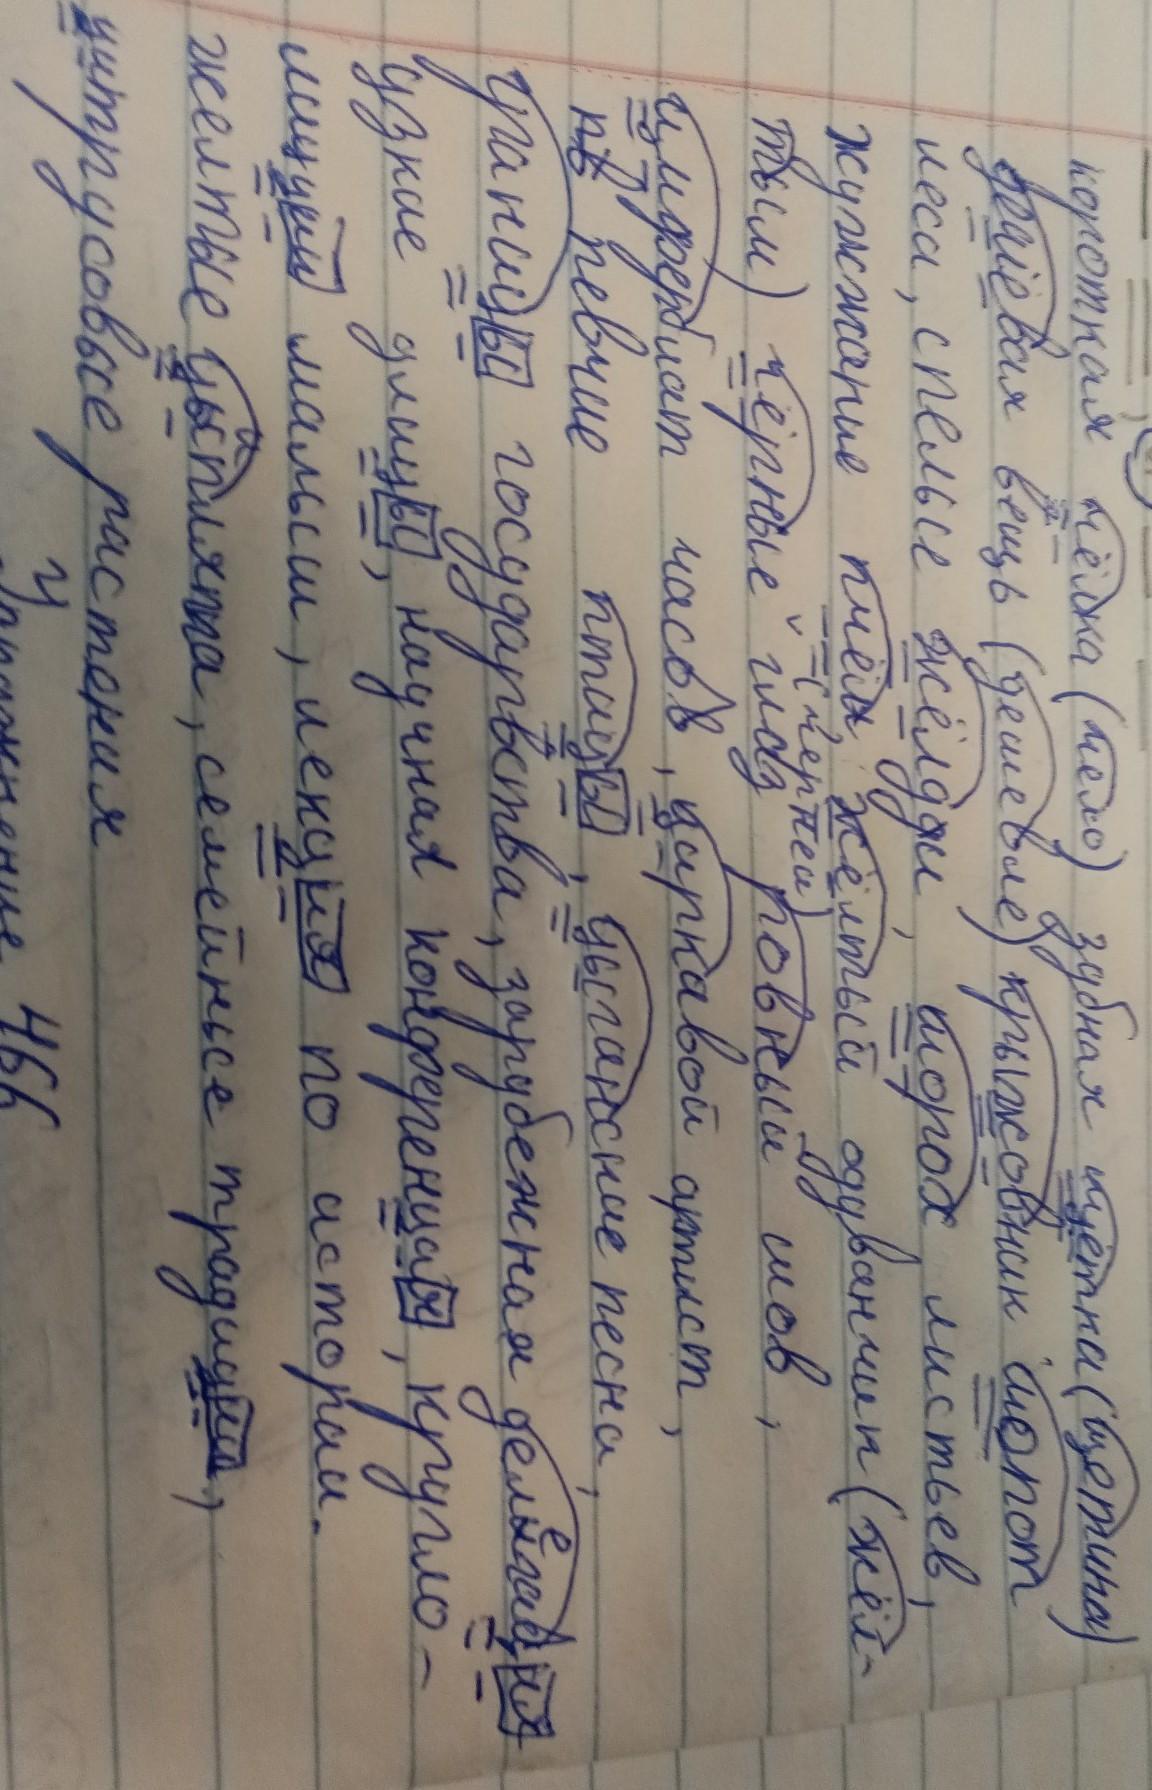 короткая чёлка (чело) зубная щётка (щетина)
дешёвая вещь (дешевле) крыжовник шопот
леса, спелые жёлуди, шорох листьев,
жужжание пчёл, жёлтый одуванчик (жёл-
тым) чёрные глаз ровный шов,
(чернеи)
циферблат часов, цирковой артист,
певчие птицы, цыганские песни,
границы государства, зарубежная делегация
узкие улицы, научная конференция, кругло-
лицый малыш, лекция по истории.
желтые цыплята, семейные традиции,
цитрусовые растения
Упражнение 466